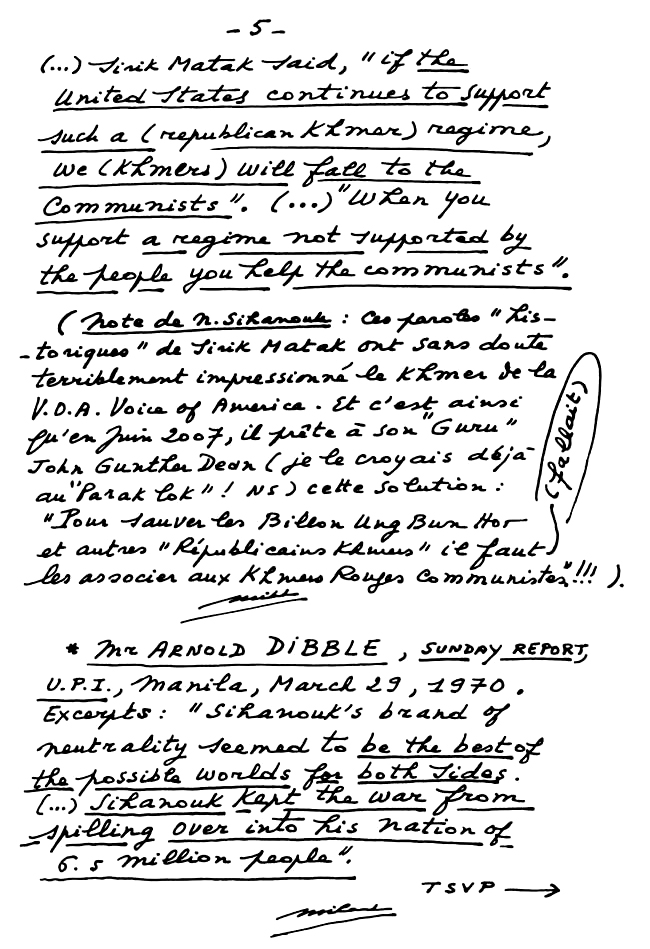 - 5 -
(...) Sirik Matak said, "if the
United States continues to support
such a (republican Khmer) regime,
we (Khmers) will fall to the
Communists". (...) "When you
support a regime not supported by
the people you help the communists".
(Note de N. Sihanouk : Ces paroles "his-
-toriques" de Sirik Matak ont sans doute
terriblement impressionné le Khmer de la
V.O.A. Voice of America. Et c'est ainsi
qu'en Juin 2007, il prête à son "Guru"
John Gunther Dean (je le croyais déjà
au "Parak lok" ! NS) cette solution :
"Pour sauver les Billon Ung Bun Hor
et autres "Républicains Khmers" il faut
(fallait)
les associer aux Khmers Rouges Communistes" !!! ).
* Mr ARNOLD DIBBLE, SUNDAY REPORT,
U.P.I., Manila, March 29, 1970.
Excerpts : "Sihanouk's brand of
neutrality seemed to be the best of
the possible worlds for both sides.
(...) Sihanouk kept the war from
spilling over into his nation of
6.5 million people".
TSVP →